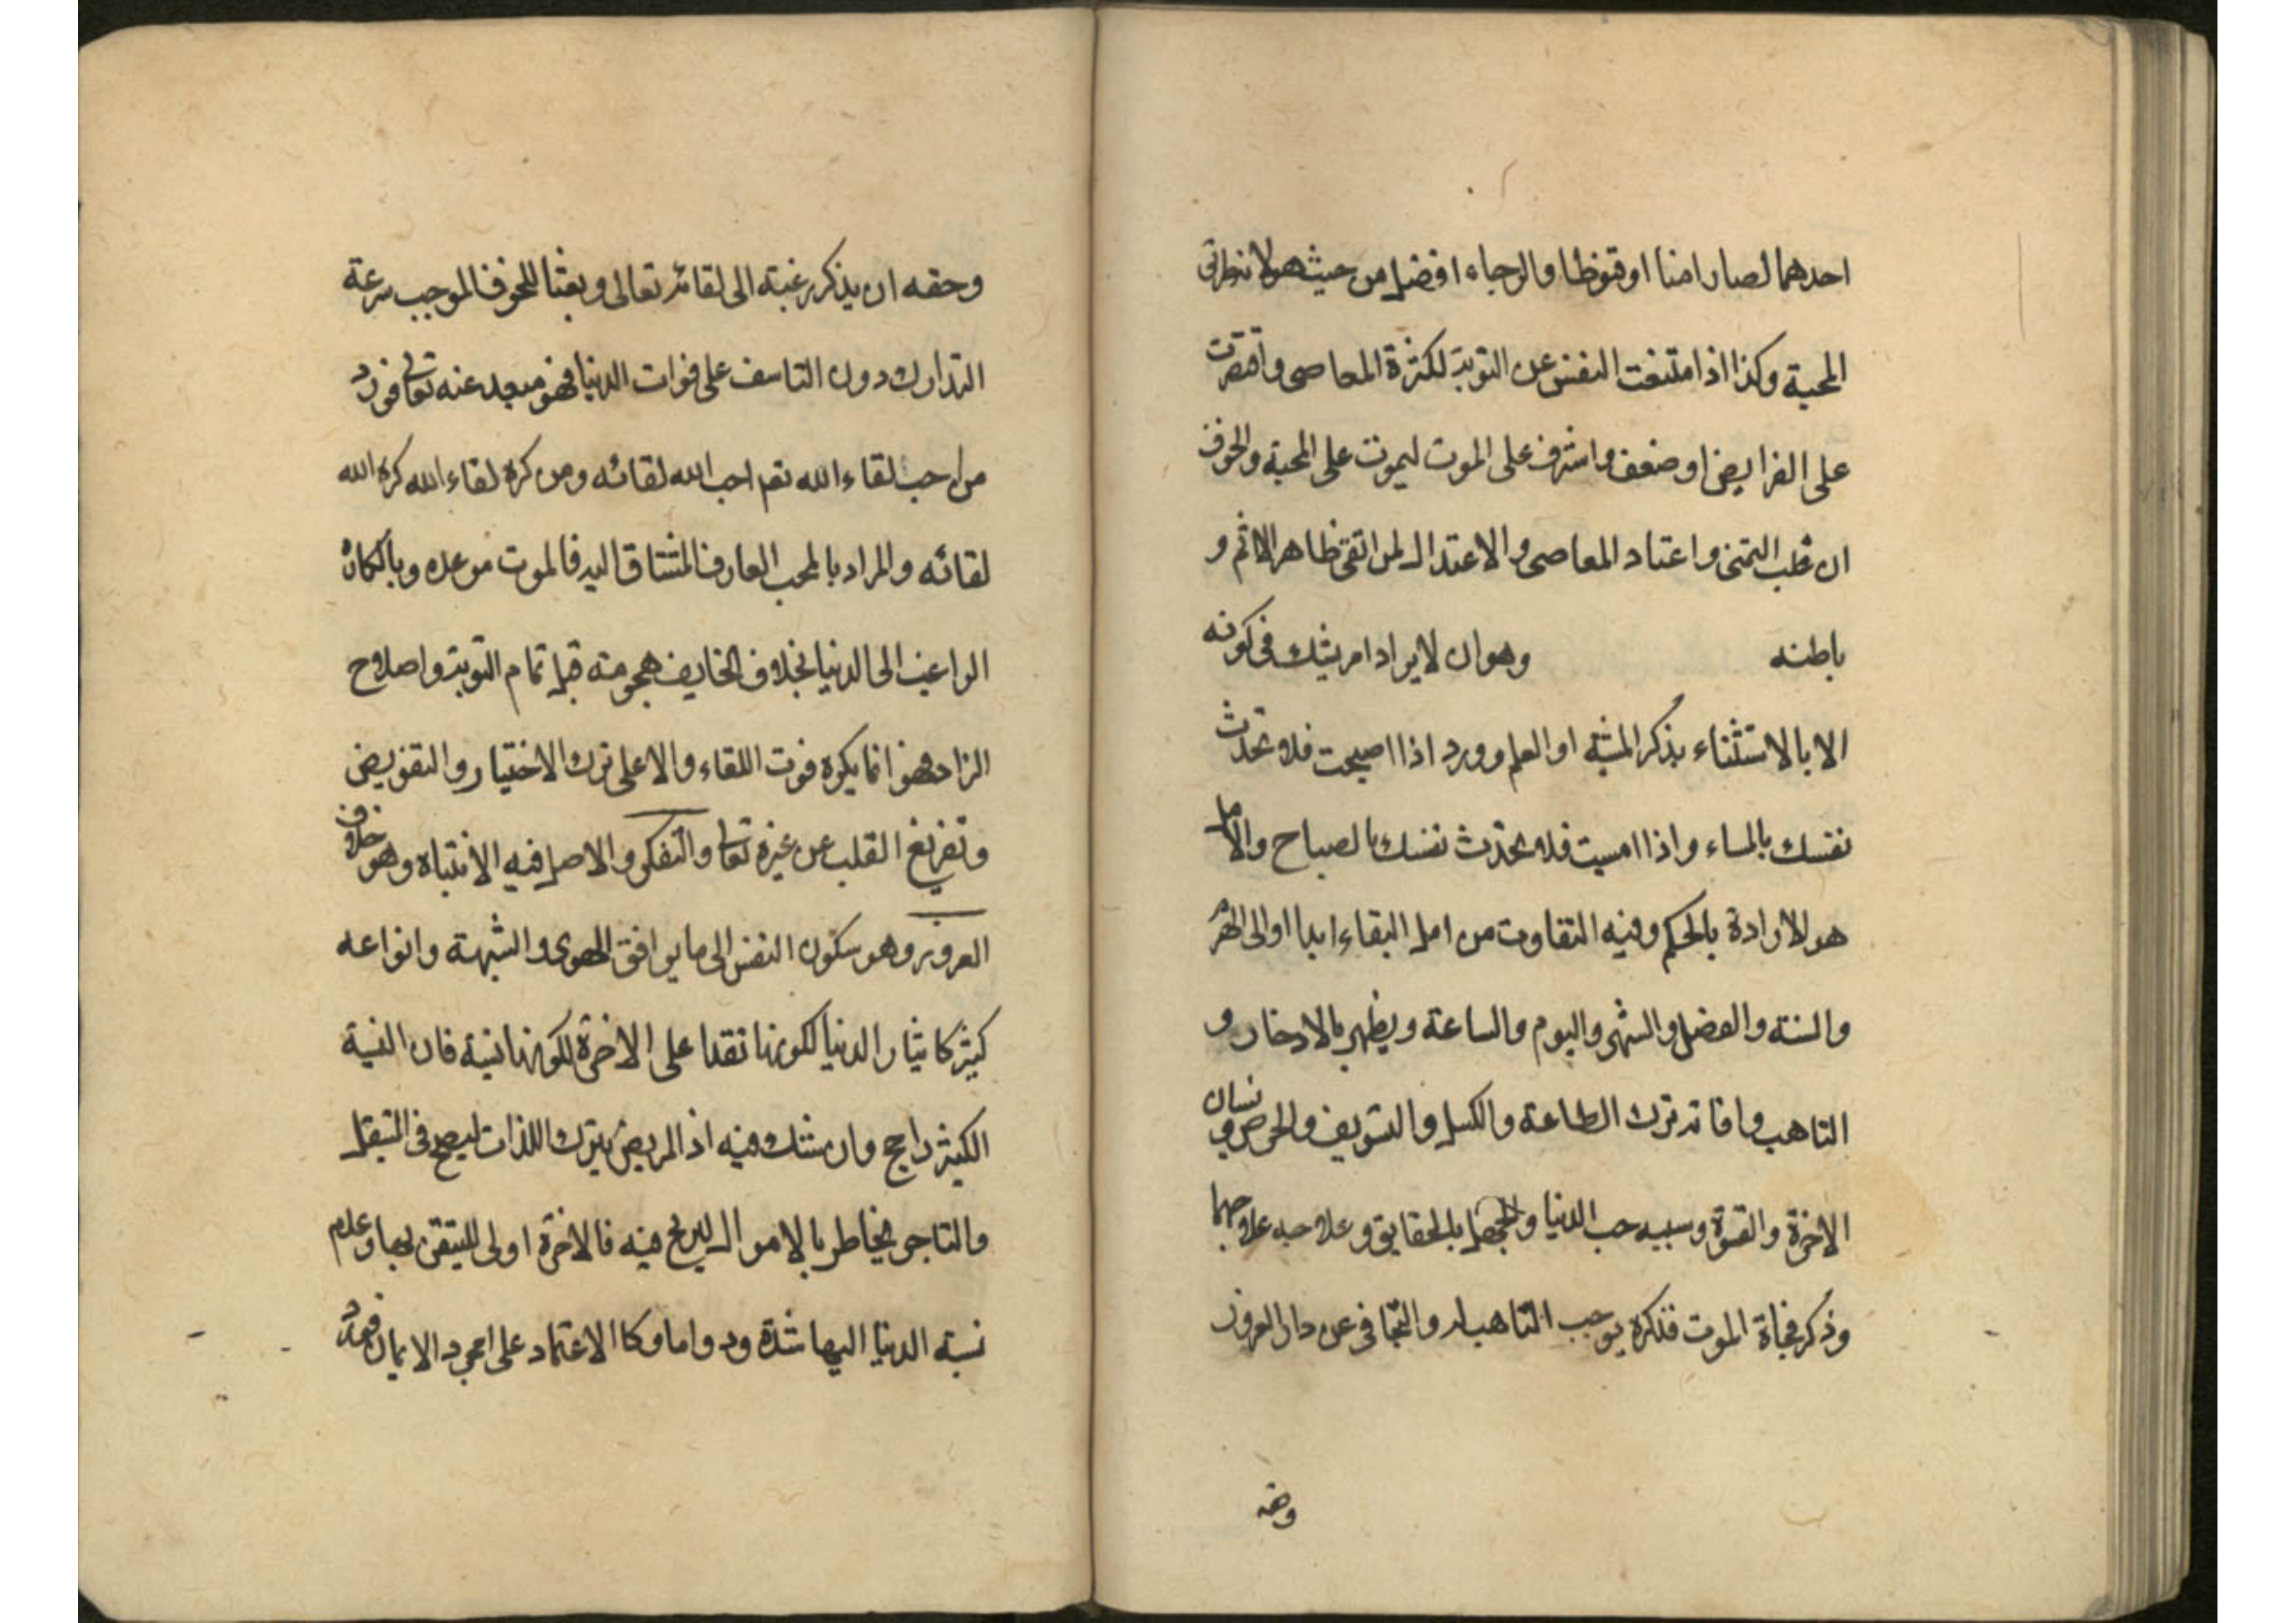 احدهما لصار امنا او قنوطا والرجاء افضل من حيث هو لانه طراتى
المحبة وكذا اذا امتنعت النفس عن التوبة لكثرة المعاصى واقتصرت
على الفرايض او ضعف واشرف على الموت ليموت على المحبة والخوف
ان غلب التمنى واعتاد المعاصى والاعتدال لمن اتقى ظاهر الاثم و
باطنه وهو ان لا يراد امر يشك فى كونه
الا بالاستثناء بذكر المشية او العلم وورد اذا اصبحت فلا تحدث
نفسك بالمساء واذا امسيت فلا تحدث نفسك بالصباح والامل
هو الارادة بالحكم وفيه التفاوت من امل البقاء ابدا او الى الهرم
والسنة والفصل والشهر واليوم والساعة ويظهر بالادخار و
التاهب وافاته ترك الطاعة والكسل والتسويف والحرص ونسيان
الاخرة والقسوة وسببه حب الدنيا والجهل بالحقايق وعلاجه علاجهما
وذكر فجاة الموت فذكره يوجب التاهب له والتجافى عن دار الغرور
وحقه
وحقه ان يذكر رغبة الى لقائه تعالى وبعثا للخوف الموجب سرعة
التدارك دون التاسف على فوات الدنيا فهو مبعد عنه تعالى فورد
من احب لقاء الله تعم احب الله لقائه ومن كره لقاء الله كره الله
لقائه والمراد بالمحب العارف المشتاق اليه فالموت موعده وبالكاره
الراغب الى الدنيا بخلاف الخايف هجومه قبل تمام التوبة واصلاح
الزاد فهو انما يكره فوت اللقاء والاعلى ترك الاختيار والتفويض
وتفريغ القلب عن غيره تعالى والتفكر والاصل فيه الانتباه وهو خلاف
الغرور وهو سكون النفس الى ما يوافق الهوى والشبهة وانواعه
كثير كايثار الدنيا لكونها نقدا على الاخرة لكونها نسية فان النسية
الكثير راجح وان شك فيه اذ المريض يترك اللذات ليصح فى المستقبل
والتاجر يخاطر بالاموال ليربح فيه فالاخرة اولى للتيقن بها وعدم
نسبة الدنيا اليها شدة ودواما وكالاعتماد على مجرد الايمان فهو